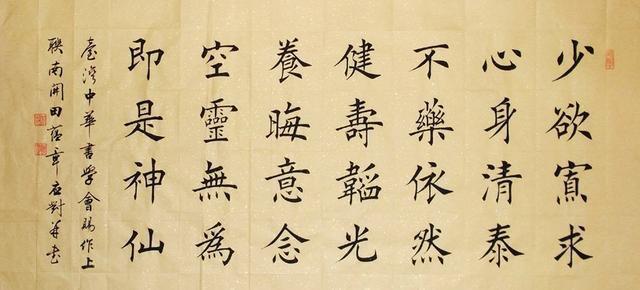 少欲寡求
心身清泰
不藥依然
健壽韜光
養晦意念
空靈無爲
即是神仙
臺湾中華書学會賜作上
聯南開田蘊章应對并書